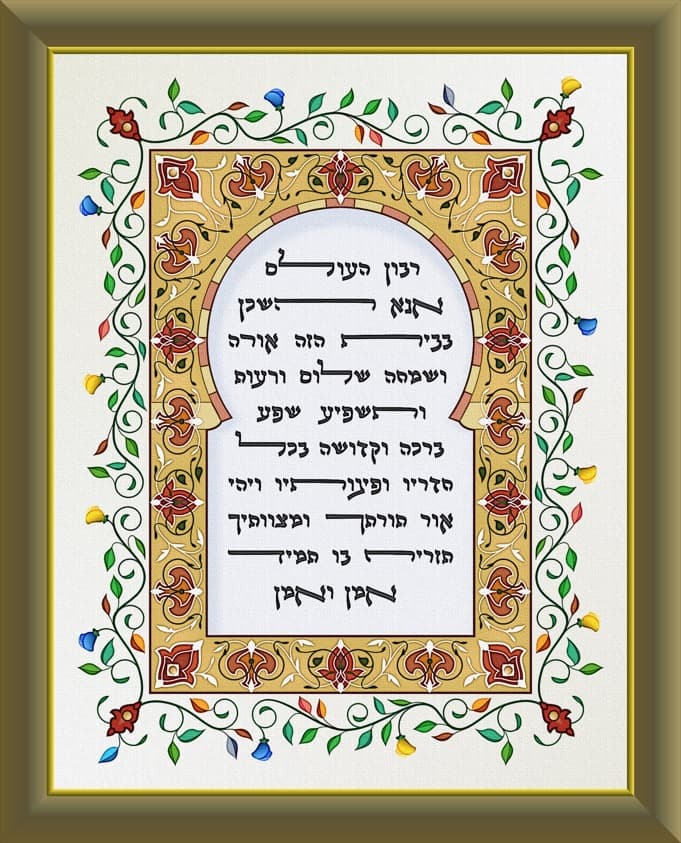 רבון העולם
אנא תשכן
בבית הזה אורה
ושמחה שלום ורעות
ותשפיע שפע
ברכה וקדושה בכל
חדריו ופינותיו ויהי
אור תורתך ומצוותיך
תזריח בו תמיד
אמן ואמן